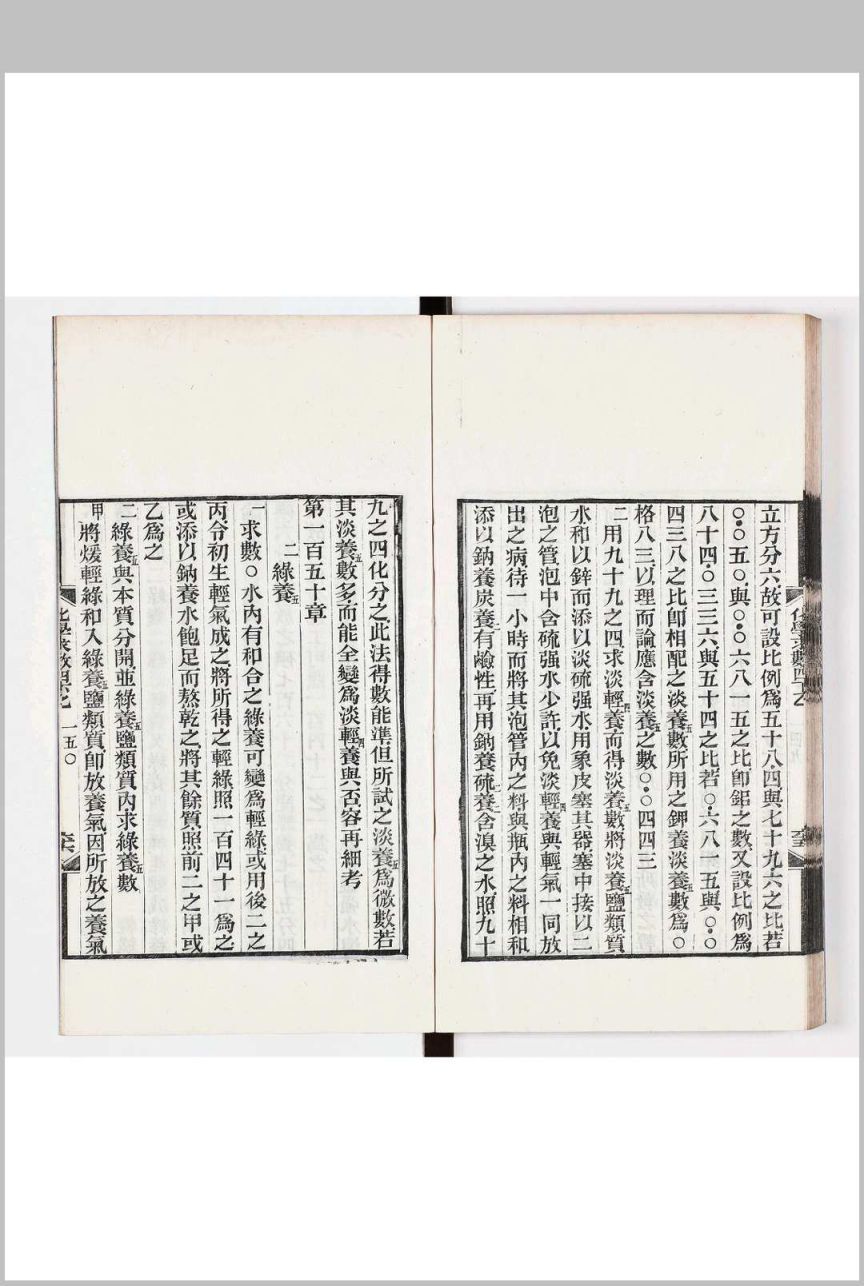 立方分六故可設比例爲五十八四與七十九六之比若
○●○五○與○●○六八一五之比卽鋁之數又設比例爲
八十四●○三三六與五十四之比若○●六八一五與○●○
四三八之比卽相配之淡養五數所用之鉀養淡養五數爲○
格八三以理而論應含淡養五之數○●○四四三
二用九十九之四求淡輕四養而得淡養五數將淡養五鹽類質
水和以鋅而添以淡硫强水用象皮塞其器塞中接以二
泡之管泡中含硫强水少許以免淡輕四養與輕氣一同放
出之病待一小時而將其泡管內之料與瓶內之料相和
添以鈉養炭養二有鹼性再用鈉養硫二養二含溴之水照九十
九之四化分之此法得數能準但所試之淡養五爲微數若
其淡養五數多而能全變爲淡輕四養與否容再細考
第一百五十章
二綠養五
一求數○水內有和合之綠養可變爲輕綠或用後二之
丙令初生輕氣成之將所得之輕綠照一百四十一爲之
或添以鈉養水飽足而熬乾之將其餘質照前二之甲或
乙爲之
二綠養五與本質分開並綠養五鹽類質內求綠養五數
甲將煖輕綠和入綠養五鹽類質卽放養氣因所放之養氣
一五○